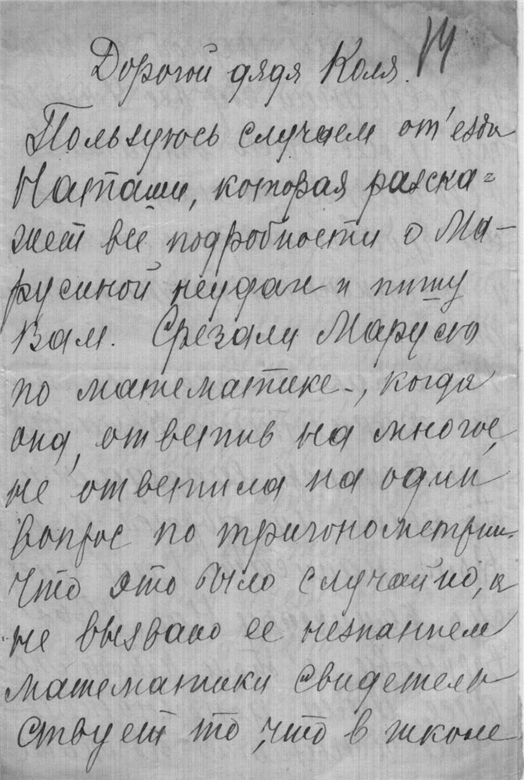 14
Дорогой дядя Коля.
Пользуюсь случаем от'езда
Наташи, которая расска=
жет все подробности о Ма-
русиной неудаче и пишу
Вам. Срезали Марусю
по математике, когда
она, ответив на многое,
не ответила на один
вопрос по тригонометрии.
Что это было случайно, а
не вызвано ее незнанием
математики свидетель
ствует то, что в школе